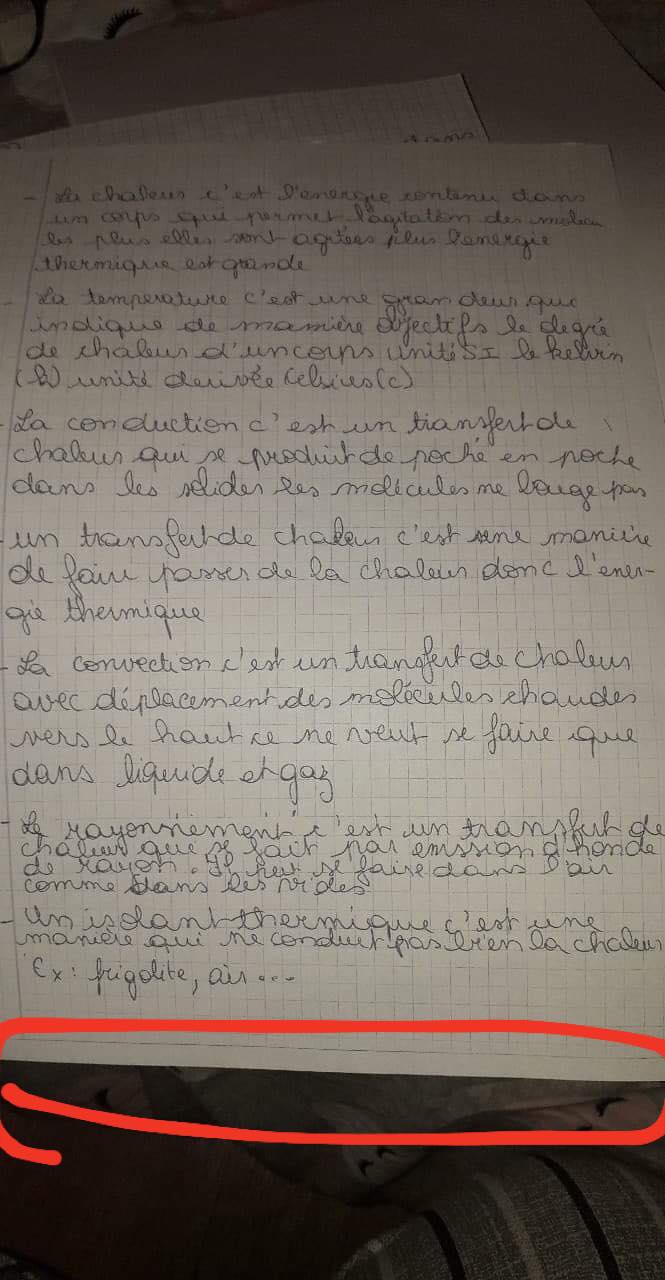 - La chaleur c'est l'energie contenu dans
un corps qui permet l'agitation des molécu
les plus elles sont agitées plus l'energie
thermique est grande
- La temperature c'est une grandeur qui
indique de manière objectifs le degré
de chaleur d'un corps unité SI le kelvin
(k) unité derivée Celsius (c)
- La conduction c'est un transfert de
chaleur qui se produit de poché en poche
dans les solides les molécules ne bouge pas
- un transfert de chaleur c'est une manière
de faire passer de la chaleur donc l'ener-
gie thermique
- La convection c'est un transfert de chaleur
avec déplacement des molécules chaudes
vers le haut ce ne veut se faire que
dans liquide et gaz
- Le rayonnement c'est un transfert de
chaleur que se fait par emission d'honde
de rayon. Il peut se faire dans l'air
comme dans les vides
- Un isolant thermique c'est une
manière qui ne conduit pas bien la chaleur
Ex: frigolite, air...